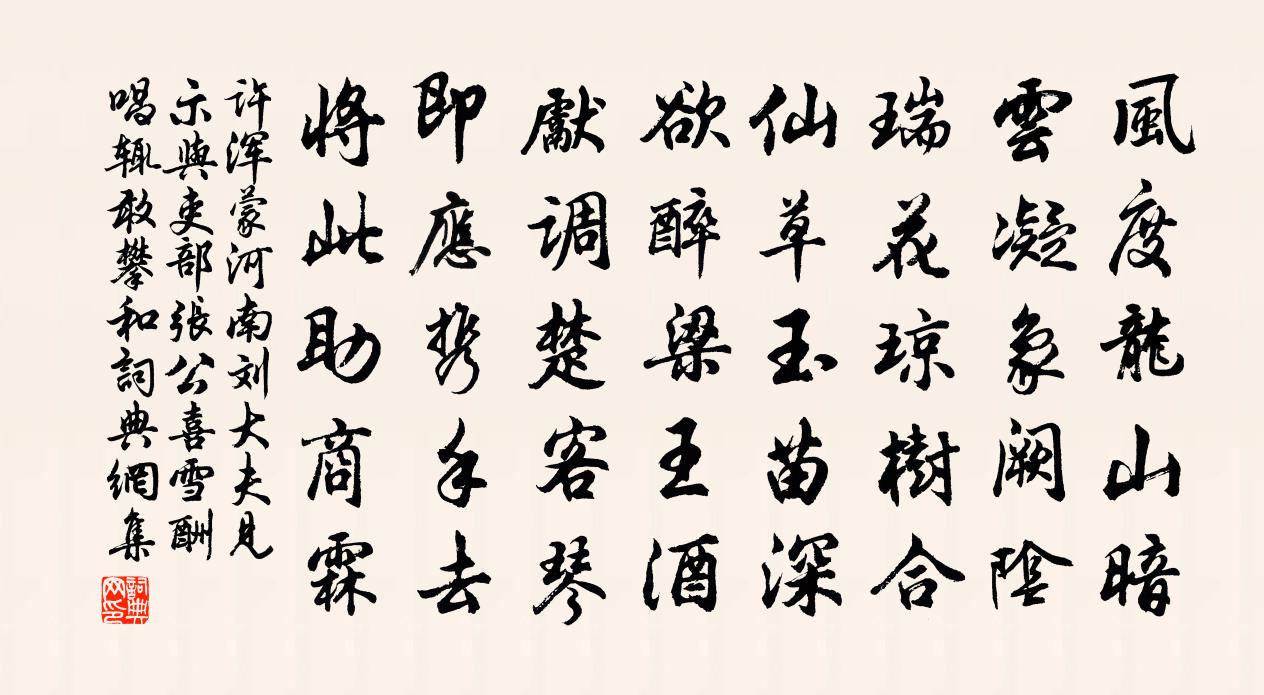 風度龍山暗
雲凝象闕陰
瑞花琼樹合
仙草玉苗深
欲醉梁王酒
獻調楚客琴
即應携手去
将此助商霖
许渾蒙河南刘大夫見
示與吏部張公喜雪酬
唱輒敢攀和詞典網集
詞典网印